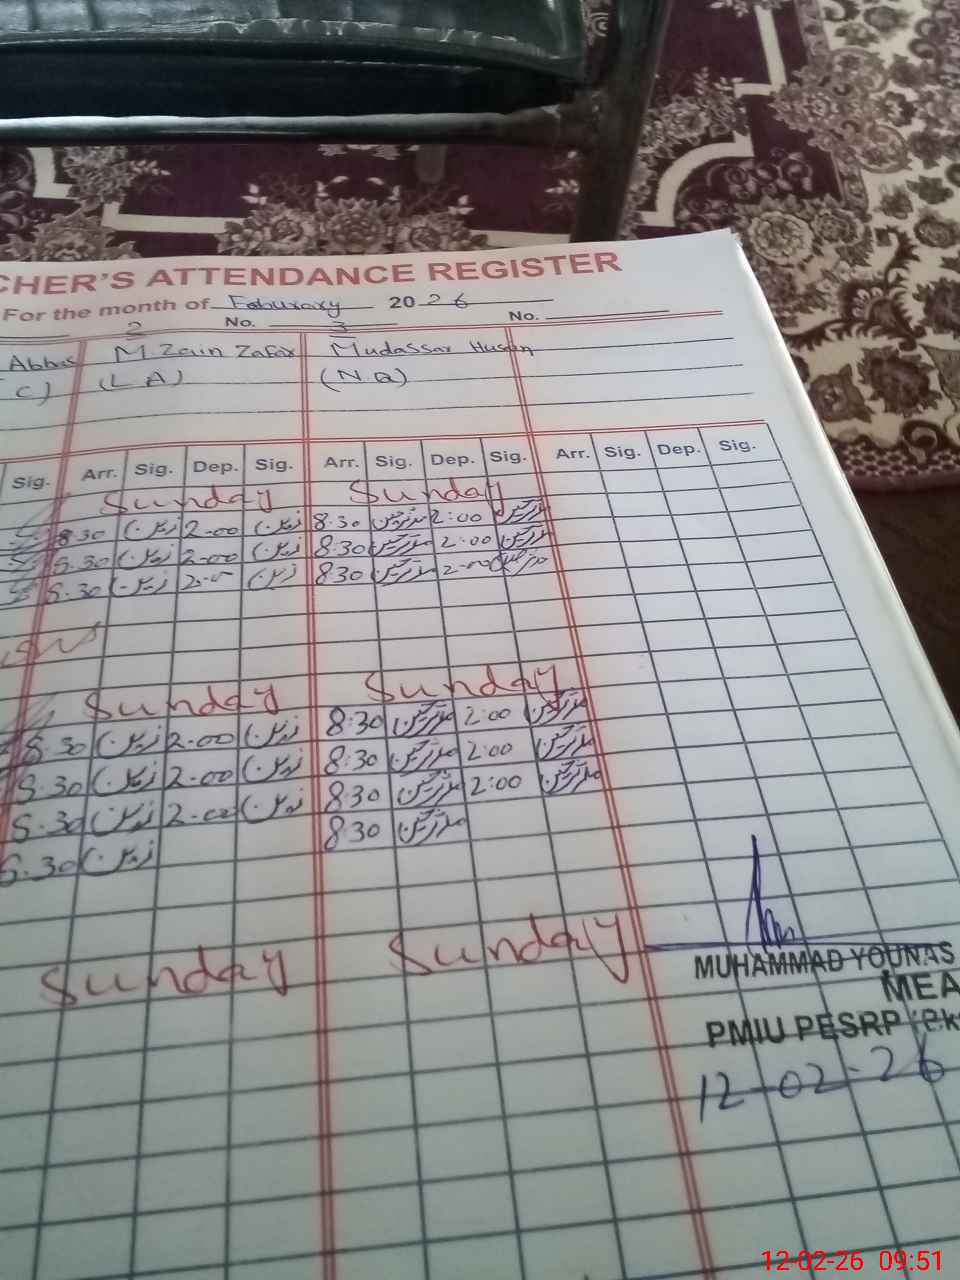 CHER'S ATTENDANCE REGISTER
For the month of Faburary 2026
2 No. 3 No.
Abbas M Zain Zafar Mudassar Husain
C) (L A) (N.Q)
Sig. Arr. Sig. Dep. Sig. Arr. Sig. Dep. Sig. Arr. Sig. Dep. Sig.
Sunday Sunday
8.30 زین 2-00 زین 8.30 مدثرحسین 2:00 مدثرحسین
8.30 زین 2-00 زین 8.30 مدثرحسین 2:00 مدثرحسین
8.30 زین زین 8:30 مدثرحسین 2-00 مدثرحسین
Sunday Sunday
8.30 زین 2-00 زین 8:30 مدثرحسین 2:00 مدثرحسین
8.30 زین 2-00 زین 8:30 مدثرحسین 2:00 مدثرحسین
8.30 زین 2-00 زین 8:30 مدثرحسین 2:00 مدثرحسین
8.30 زین 8:30 مدثرحسین
Sunday Sunday
MUHAMMAD YOUNAS
MEA
PMIU PESRP
12-02-26
12-02-26 09:51